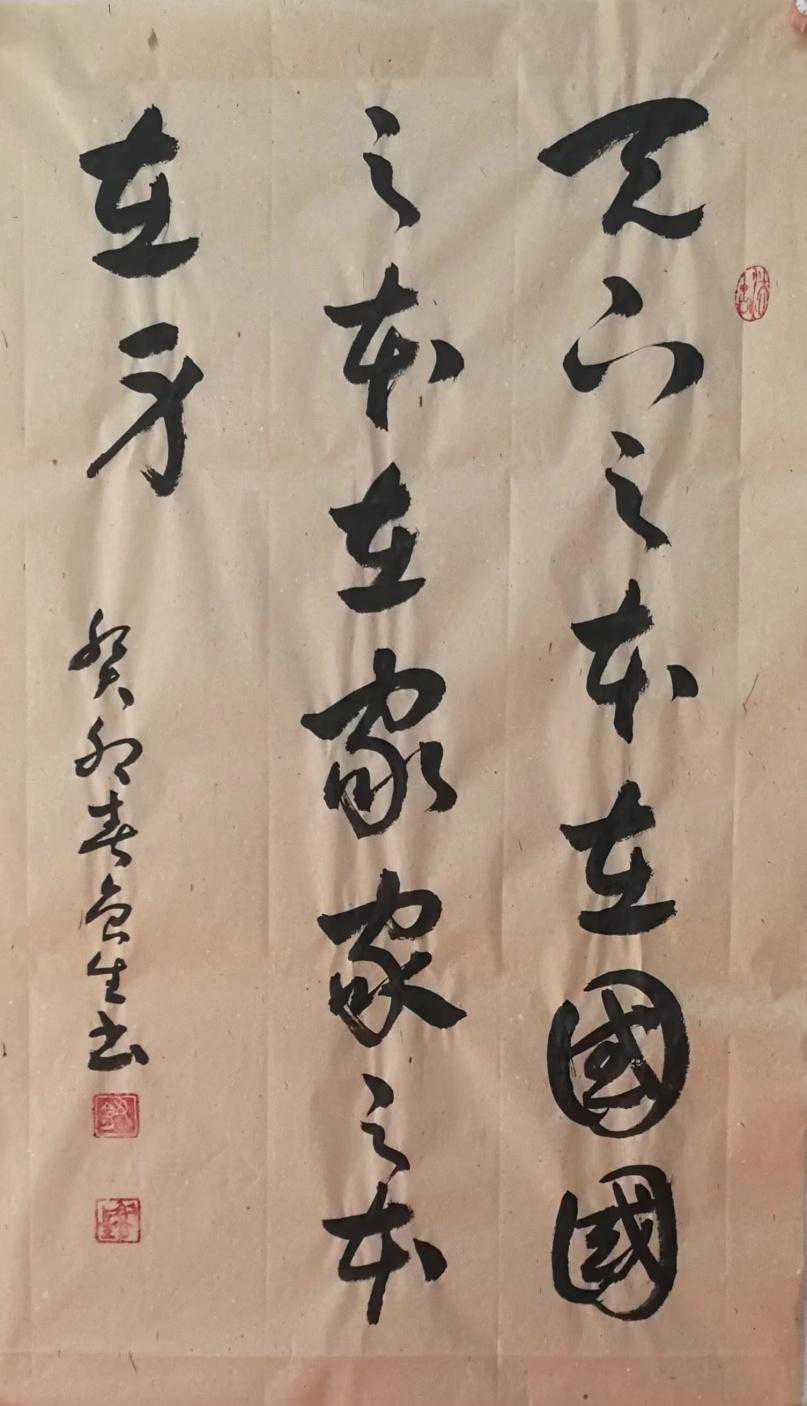 天下之本在國國
之本在家家之本
在身
癸卯春生书